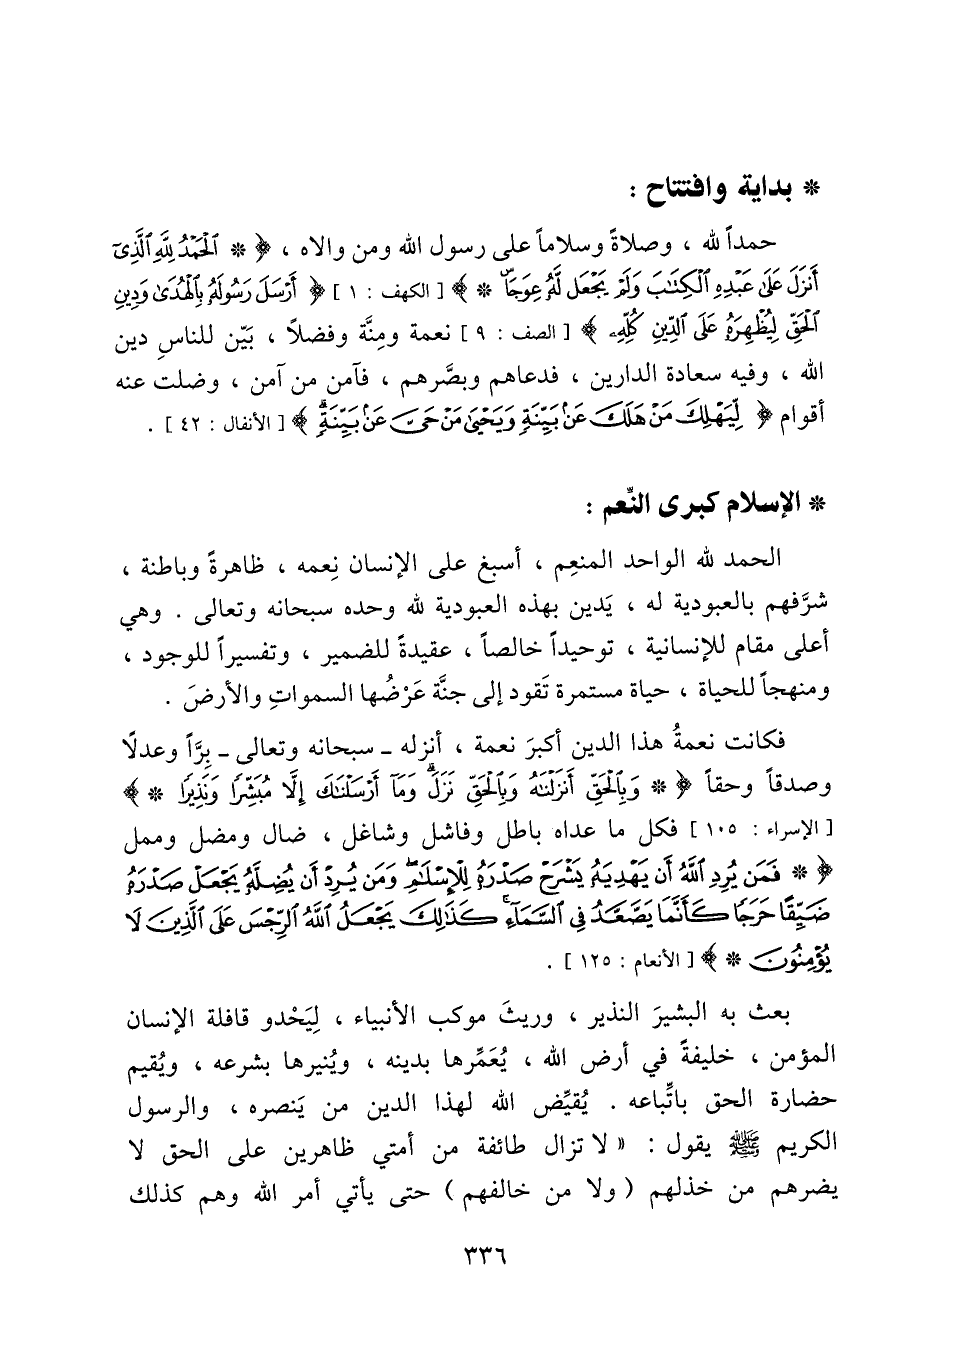 * بداية وافتتاح :
حمداً لله ، وصلاةً وسلاماً على رسول الله ومن والاه ، ﴿ * ٱلْحَمْدُ لِلَّهِ ٱلَّذِىٓ
أَنزَلَ عَلَىٰ عَبْدِهِ ٱلْكِتَٰبَ وَلَمْ يَجْعَل لَّهُۥ عِوَجَاۜ * ﴾ [ الكهف : ١ ] ﴿ أَرْسَلَ رَسُولَهُۥ بِٱلْهُدَىٰ وَدِينِ
ٱلْحَقِّ لِيُظْهِرَهُۥ عَلَى ٱلدِّينِ كُلِّهِۦ ﴾ [ الصف : ٩ ] نعمة ومِنَّة وفضلاً ، بَيّن للناسِ دين
الله ، وفيه سعادة الدارين ، فدعاهم وبصَّرهم ، فآمن من آمن ، وضلت عنه
أقوام ﴿ لِّيَهْلِكَ مَنْ هَلَكَ عَنۢ بَيِّنَةٍ وَيَحْيَىٰ مَنْ حَىَّ عَنۢ بَيِّنَةٍۗ ﴾ [ الأنفال : ٤٢ ] .
* الإسلام كبرى النِّعم :
الحمد لله الواحد المنعِم ، أسبغ على الإنسان نِعمه ، ظاهرةً وباطنة ،
شرَّفهم بالعبودية له ، يَدين بهذه العبودية لله وحده سبحانه وتعالى . وهي
أعلى مقام للإنسانية ، توحيداً خالصاً ، عقيدةً للضمير ، وتفسيراً للوجود ،
ومنهجاً للحياة ، حياة مستمرة تَقود إلى جنَّة عَرْضُها السمواتِ والأرضَ .
فكانت نعمةُ هذا الدين أكبرَ نعمة ، أنزله ـ سبحانه وتعالى ـ بِرَّاً وعدلًا
وصدقاً وحقاً ﴿ * وَبِٱلْحَقِّ أَنزَلْنَٰهُ وَبِٱلْحَقِّ نَزَلَۗ وَمَآ أَرْسَلْنَٰكَ إِلَّا مُبَشِّرًا وَنَذِيرًا * ﴾
[ الإسراء : ١٠٥ ] فكل ما عداه باطل وفاشل وشاغل ، ضال ومضل وممل
﴿ * فَمَن يُرِدِ ٱللَّهُ أَن يَهْدِيَهُۥ يَشْرَحْ صَدْرَهُۥ لِلْإِسْلَٰمِۖ وَمَن يُرِدْ أَن يُضِلَّهُۥ يَجْعَلْ صَدْرَهُۥ
ضَيِّقًا حَرَجًا كَأَنَّمَا يَصَّعَّدُ فِى ٱلسَّمَآءِۚ كَذَٰلِكَ يَجْعَلُ ٱللَّهُ ٱلرِّجْسَ عَلَى ٱلَّذِينَ لَا
يُؤْمِنُونَ * ﴾ [ الأنعام : ١٢٥ ] .
بعث به البشيرَ النذير ، وريثَ موكب الأنبياء ، لِيَحْدو قافلة الإنسان
المؤمن ، خليفةً في أرض الله ، يُعَمِّرها بدينه ، ويُنيرها بشرعه ، ويُقيم
حضارة الحق باتِّباعه . يُقيِّض الله لهذا الدين من يَنصره ، والرسول
الكريم ﷺ يقول : « لا تزال طائفة من أمتي ظاهرين على الحق لا
يضرهم من خذلهم ( ولا من خالفهم ) حتى يأتي أمر الله وهم كذلك
٣٣٦